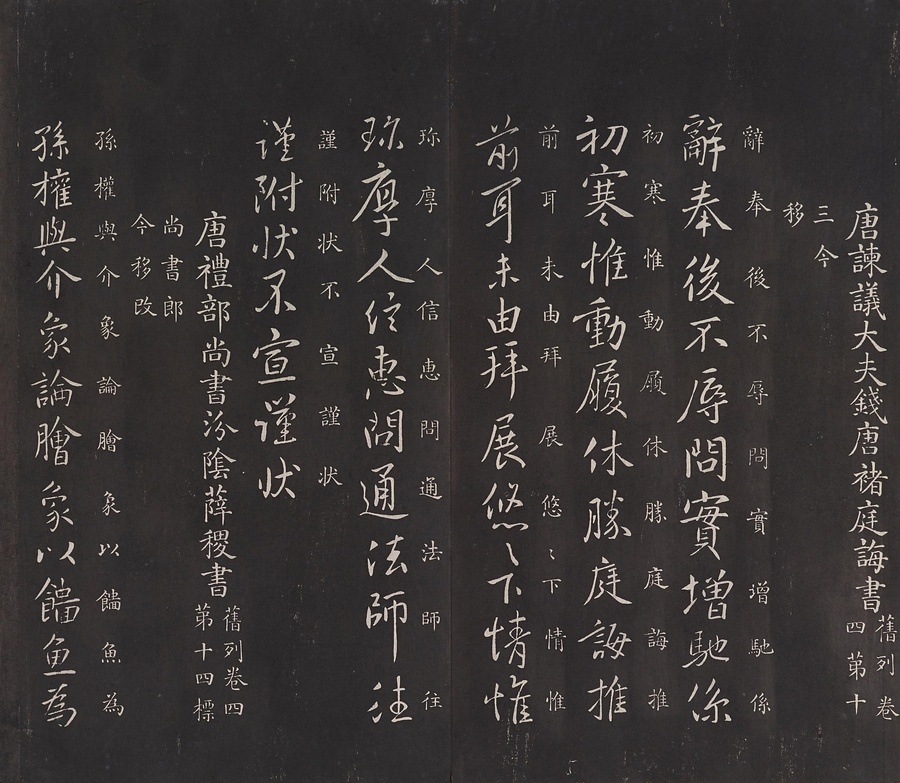 唐諫議大夫錢唐褚庭誨書
舊列卷
四第十
三今
移
辭奉後不辱問實增馳係
辭奉後不辱問實增馳係
初寒惟動履休勝庭誨推
初寒惟動履休勝庭誨推
前耳未由拜展悠〻下情惟
前耳未由拜展悠〻下情惟
珎厚人信惠問通法師往
珎厚人信惠問通法師往
謹附狀不宣謹狀
謹附狀不宣謹狀
唐禮部尚書汾陰薛稷書
舊列卷四
第十四標
尚書郎
今移改
孫權與介象論膾象以鯔魚為
孫權與介象論膾象以鯔魚為